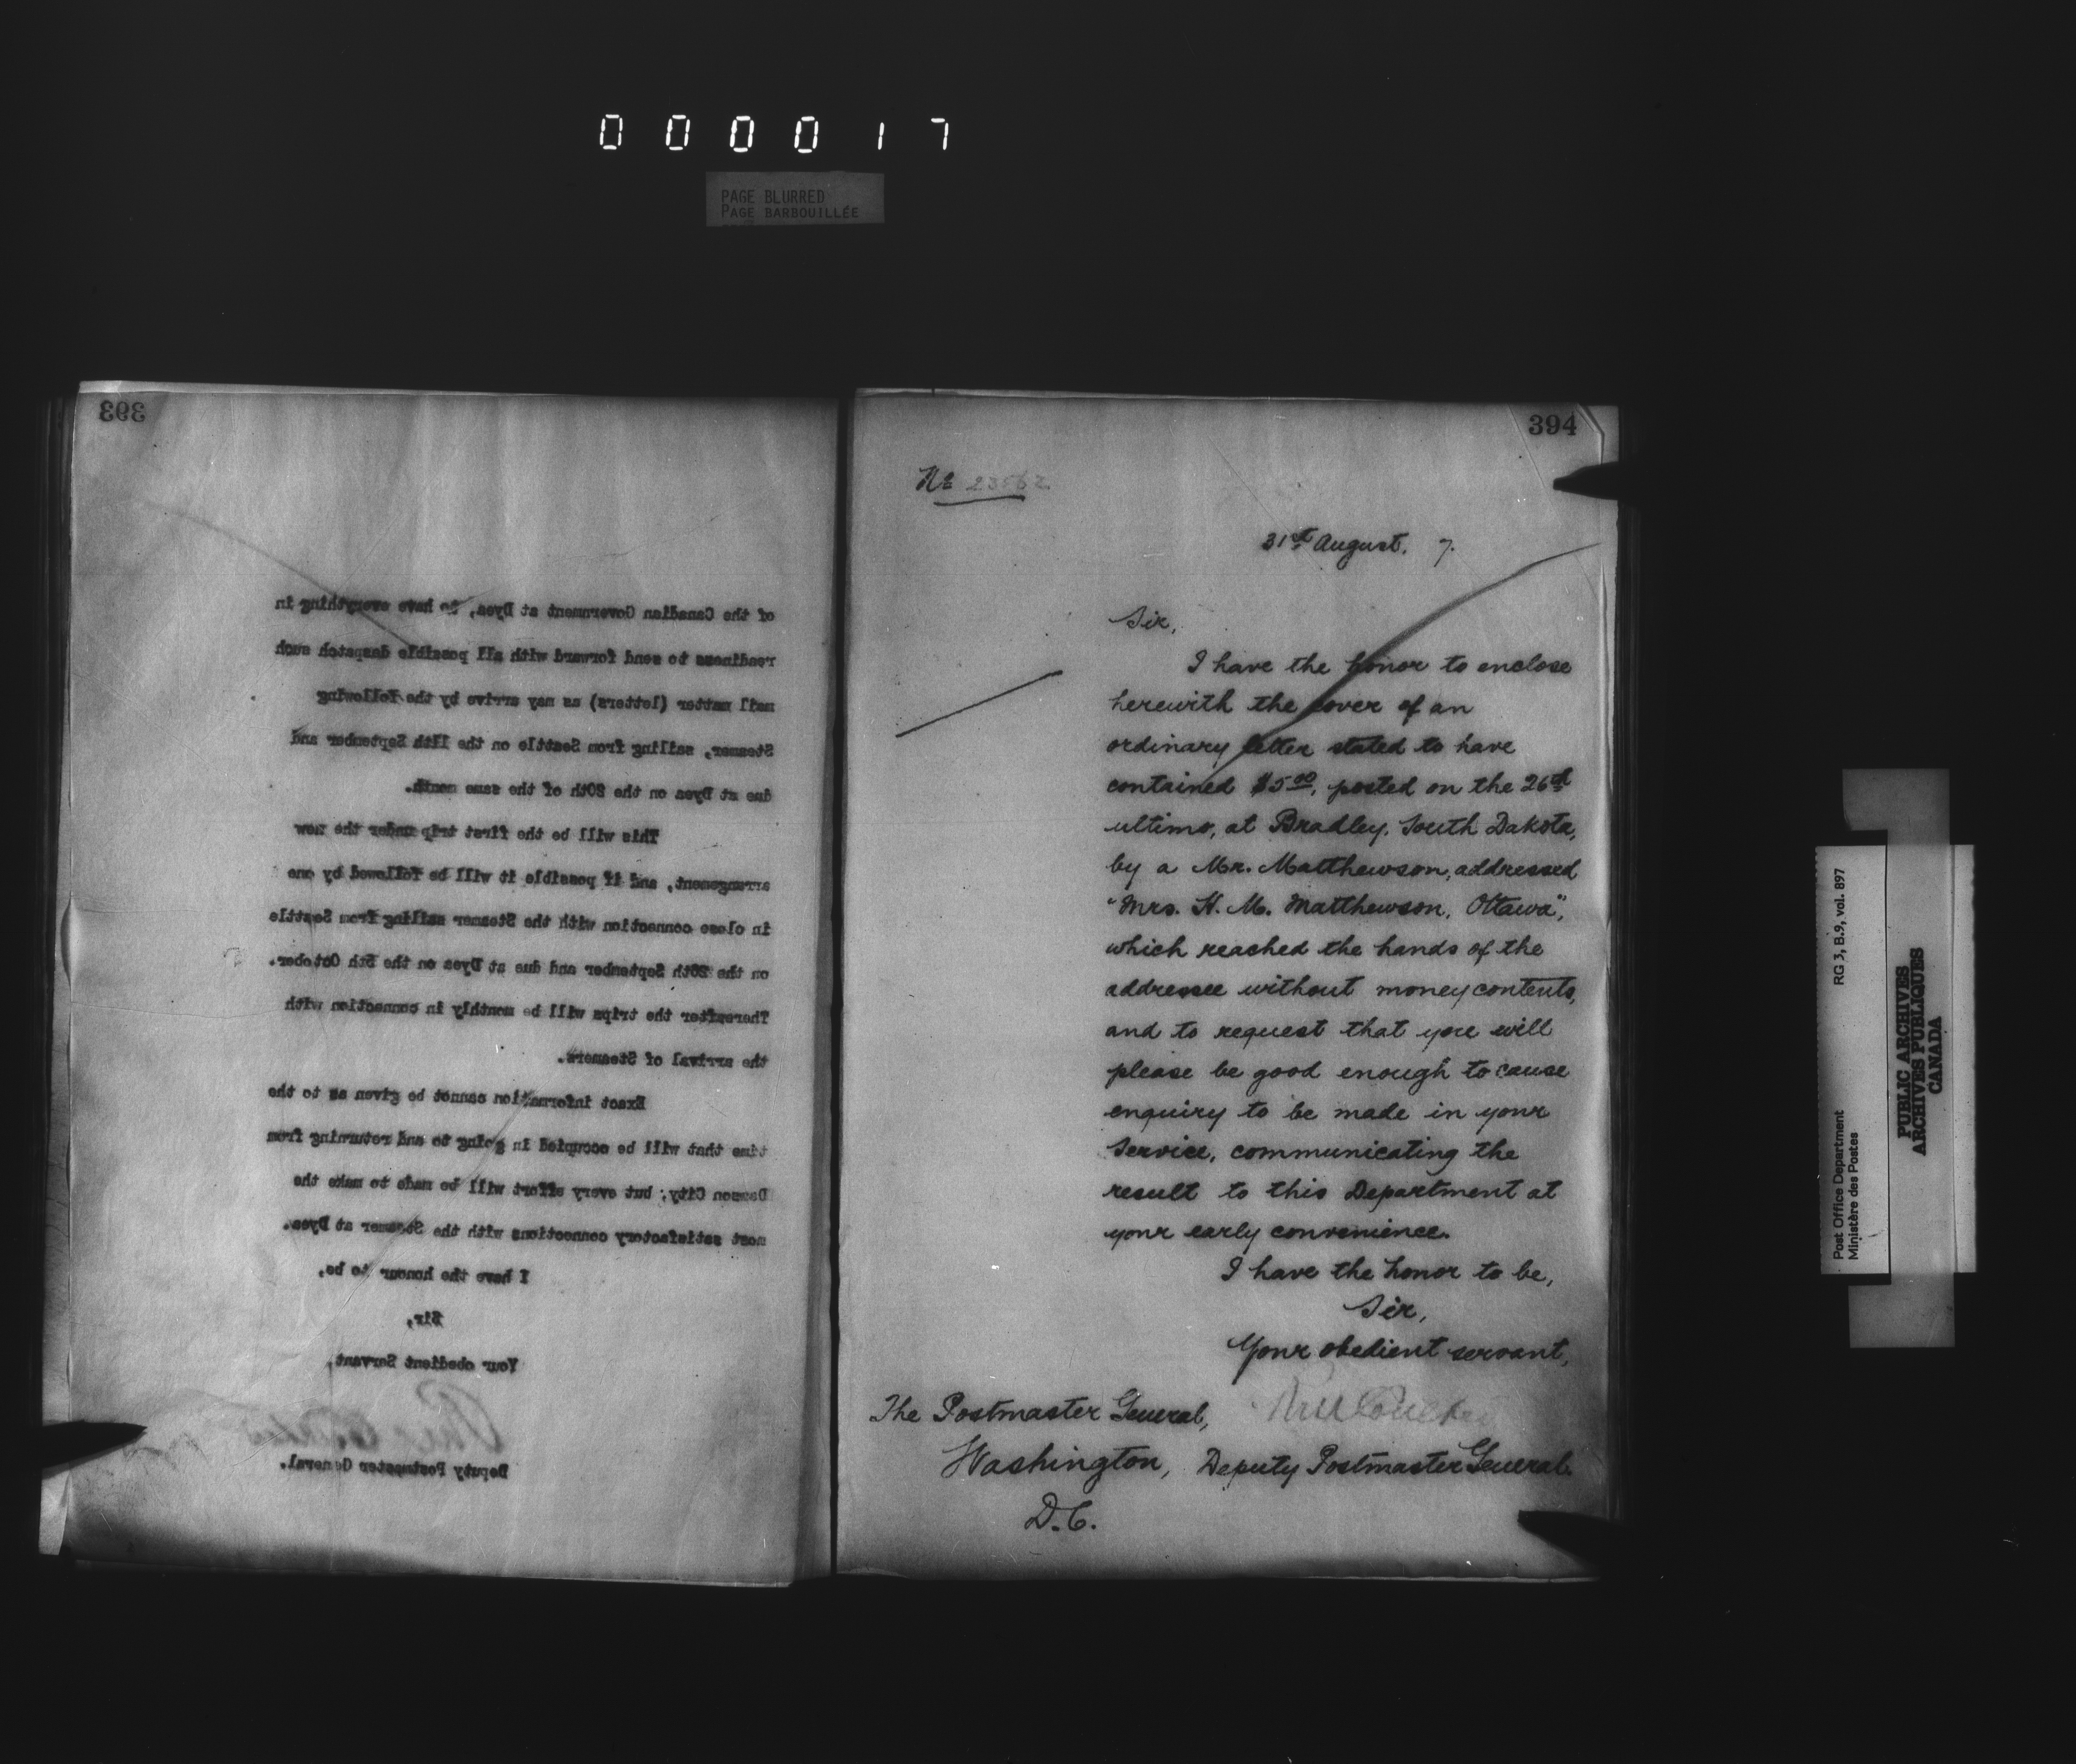 000017
PAGE BLURRED
PAGE BARBOUILLÉE
393
of the Canadian Government at Dyea, to have everything in
readiness to send forward with all possible despatch such
mail matter (letters) as may arrive by the following
Steamer, sailing from Seattle on the 11th September and
due at Dyea on the 20th of the same month.
This will be the first trip under the new
arrangement, and if possible it will be followed by one
in close connection with the Steamer sailing from Seattle
on the 26th September and due at Dyea on the 5th October.
Thereafter the trips will be monthly in connection with
the arrival of Steamers.
Exact information cannot be given as to the
time that will be occupied in going to and returning from
Dawson City; but every effort will be made to make the
most satisfactory connections with the Steamer at Dyea.
I have the honour to be,
Sir,
Your obedient Servant,
Deputy Postmaster General.
394
No
31st August, 7.
Sir,
I have the honor to enclose
herewith the cover of an
ordinary letter stated to have
contained $5.00, posted on the 26th
ultimo, at Bradley, South Dakota,
by a Mr. Matthewson, addressed
"Mrs. H. M. Matthewson, Ottawa",
which reached the hands of the
addressee without money contents,
and to request that you will
please be good enough to cause
enquiry to be made in your
Service, communicating the
result to this Department at
your early convenience.
I have the honor to be,
Sir,
Your obedient servant,
The Postmaster General,
Washington, Deputy Postmaster General.
D.C.
Post Office Department RG 3, B.9, vol. 897
Ministère des Postes
PUBLIC ARCHIVES
ARCHIVES PUBLIQUES
CANADA